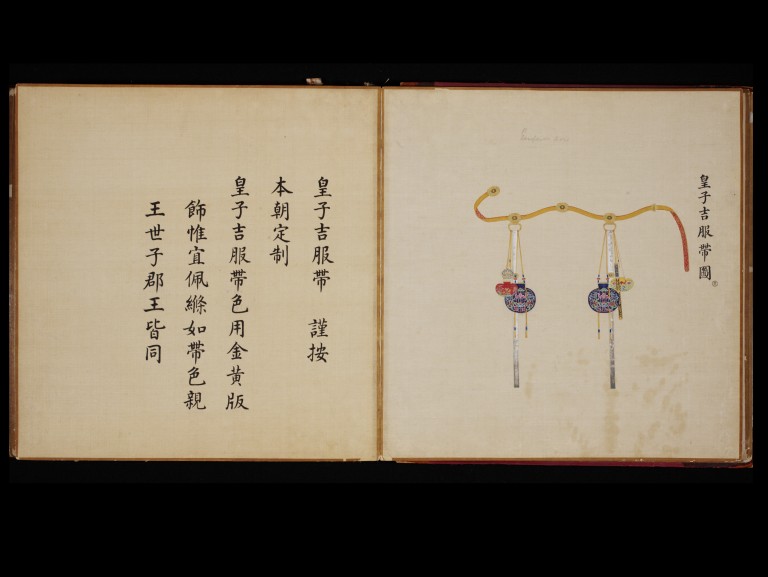 皇子吉服帶圖
皇子吉服帶 謹按
本朝定制
皇子吉服帶色用金黃版
飾惟宜佩絛如帶色親
王世子郡王皆同